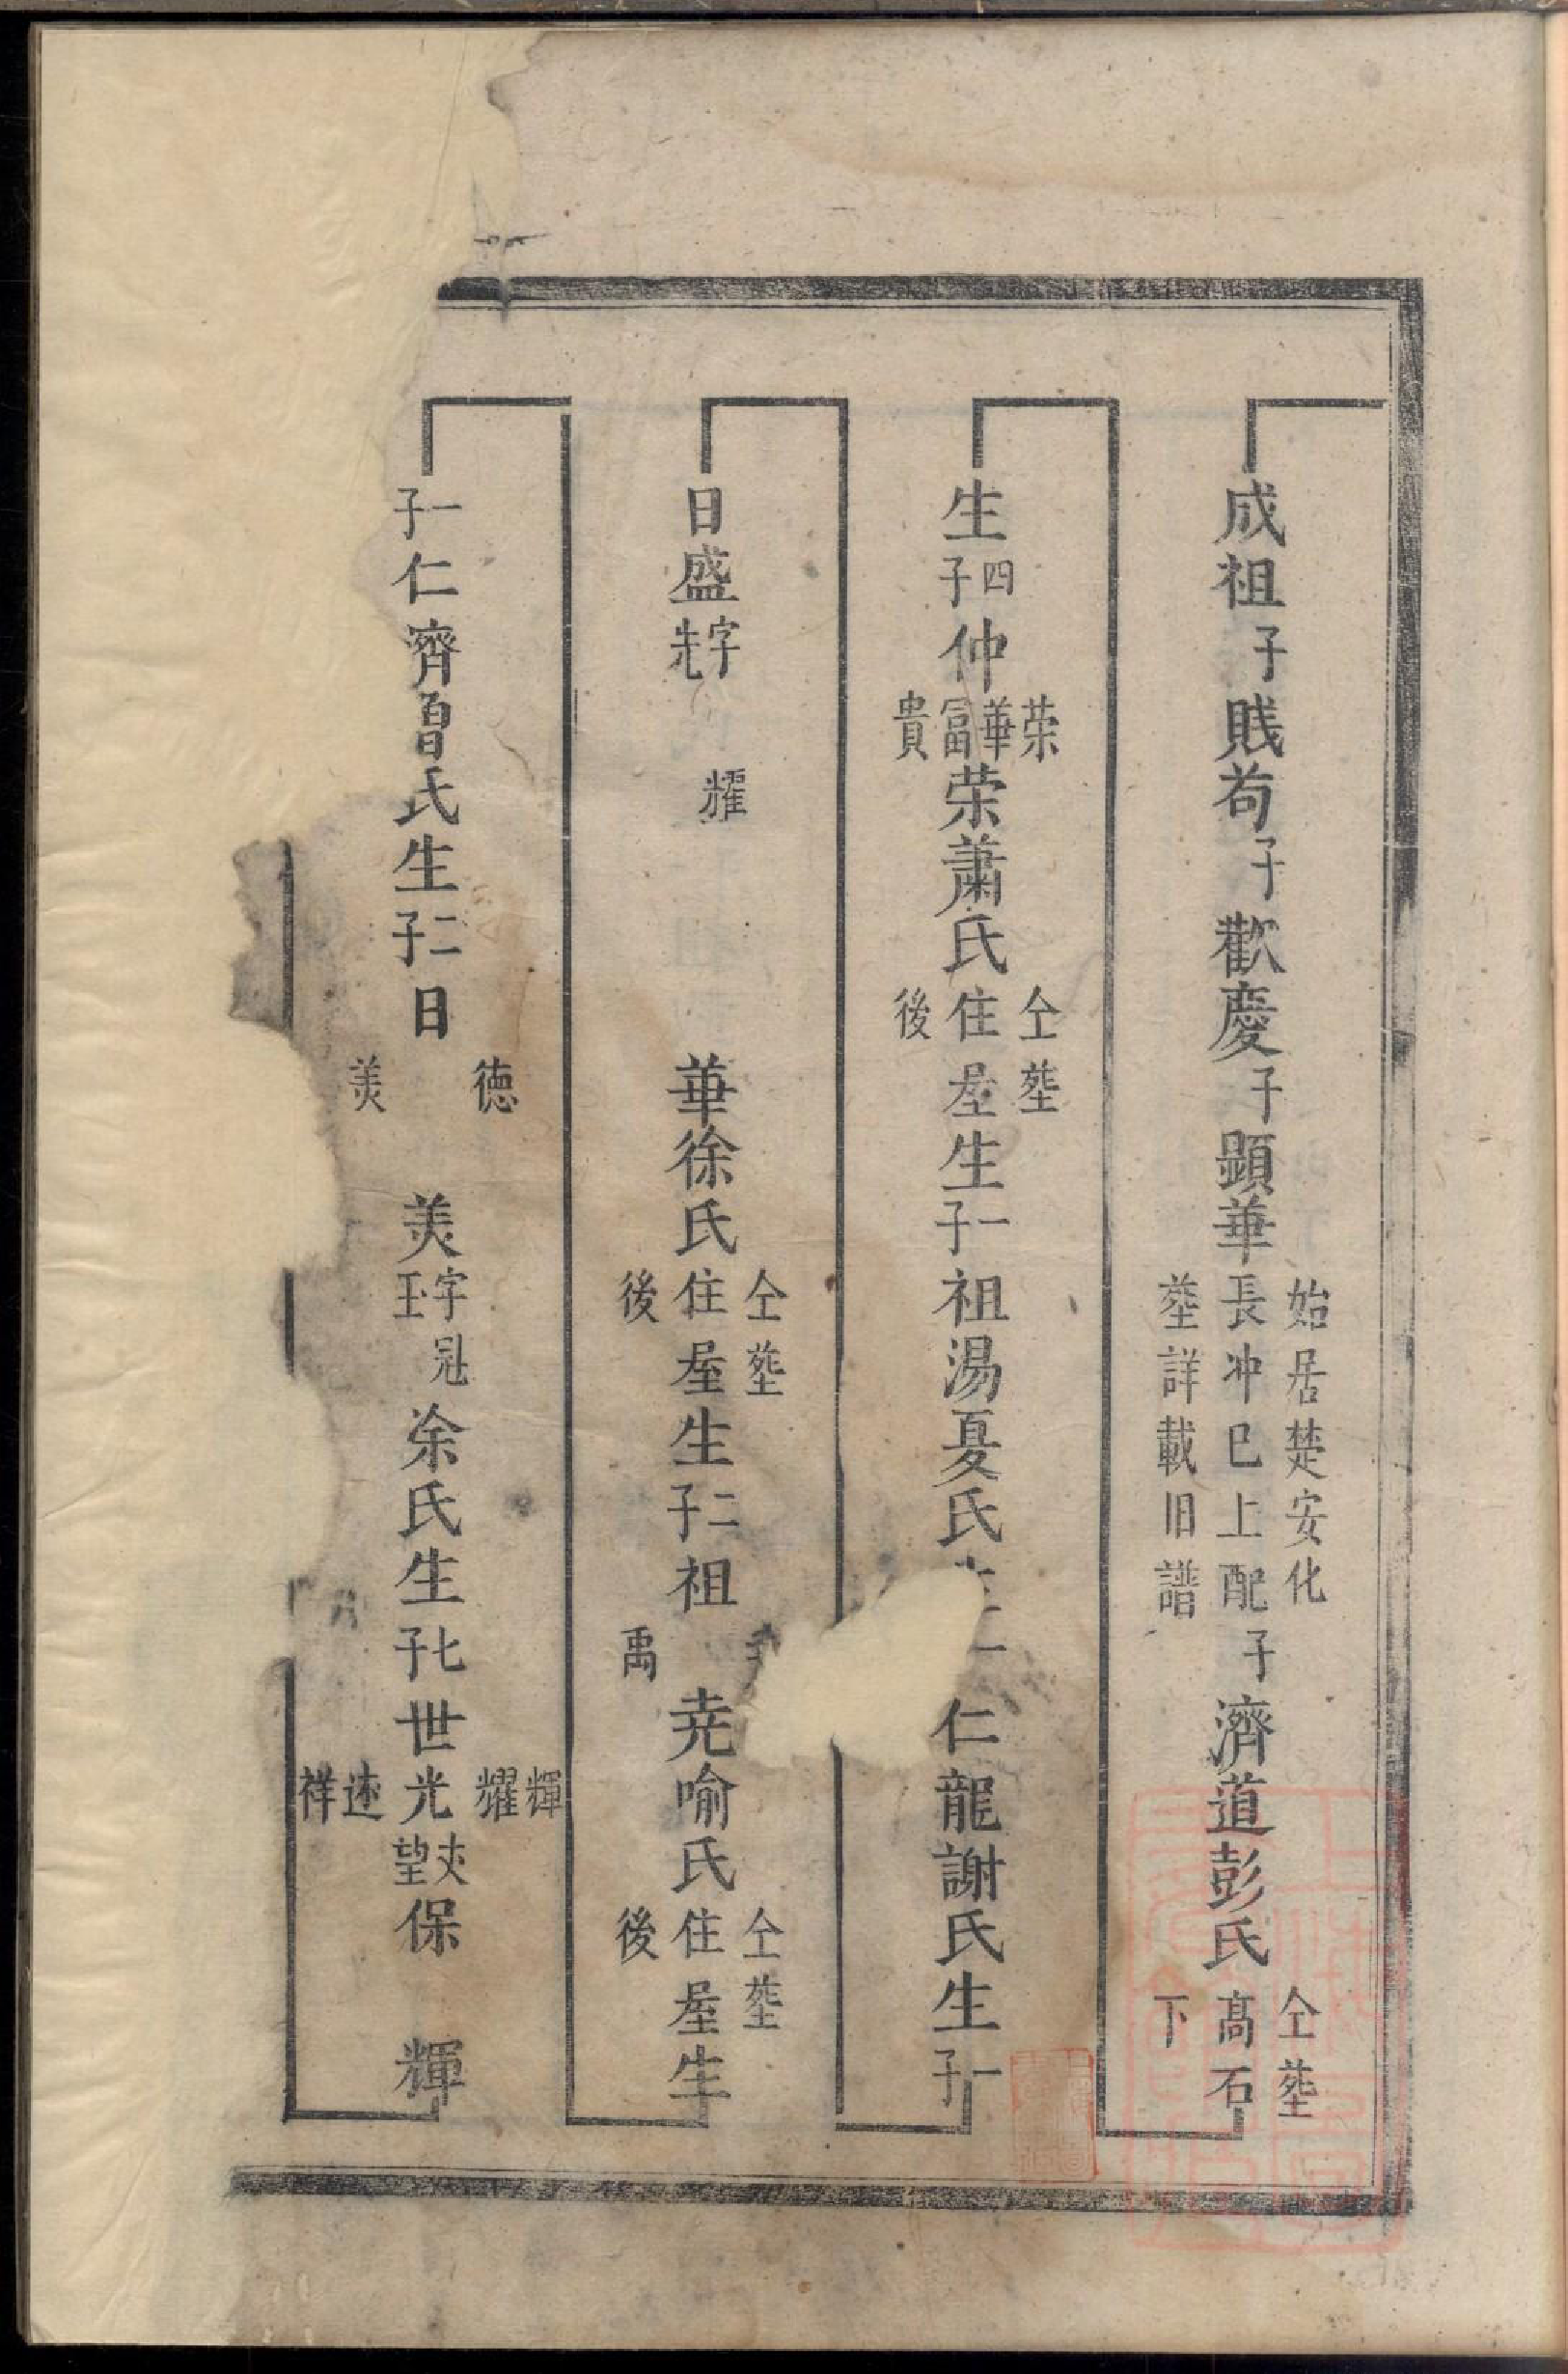 成祖子賎苟子歡慶子顕華始居楚安化長冲巳上配塟詳載旧譜子濟道彭氏仝塟高石下
生四子仲荣華富貴荣蕭氏仝塟住屋後生一子祖湯夏氏仁龍謝氏生一子
日盛字先耀華徐氏仝塟住屋後生二子祖禹尭喻氏仝塟住屋後生
一子仁濟曾氏生二子日德美美字冠玉涂氏生七子世輝耀光逵祥夾望保輝